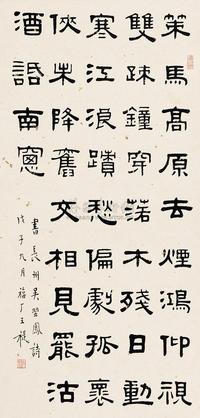 策馬高原去煙鴻仰視
雙疎鐘穿落木殘日動
寒江浪蹟愁偏劇孤褱
俠未降舊交相見罷沽
酒話南窗
書長州吳翌鳳詩
戊子九月福厂王禔